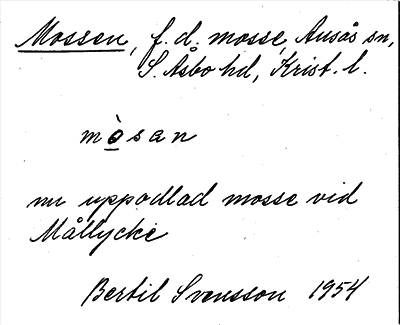 Mossen, f.d. mosse, Ausås sn,
S. Åsbo hd, Krist. l.
mòsan
nu uppodlad mosse vid
Mållycke
Bertil Svensson 1954